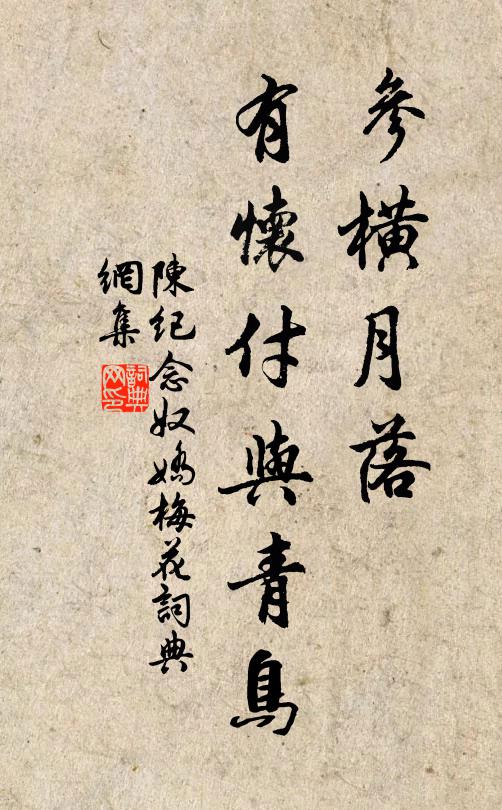 參橫月落
有懷付與青鳥
陳紀念奴嬌梅花詞典
網集
詞典網印